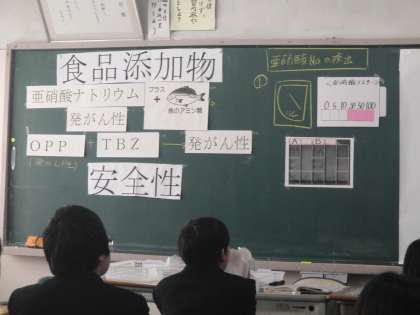 食品添加物
亜硝酸ナトリウム
プラス
+
魚のアミン類
発がん性
OPP + TBZ → 発がん性
(発がん性)
安全性
亜硝酸Naの検出
①
0 5 10 30 50 100
(A) (B)